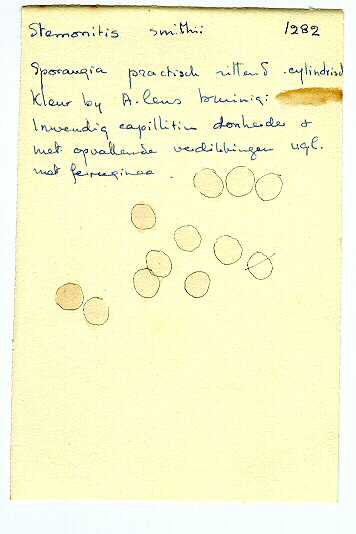 Stemonitis smithii 1282
Sporangia practisch zittend. cylindrisch
Kleur by A. lens bruinig:
Inwendig capillitium donkerder &
met opvallende verdikkingen vgl.
met ferruginea.